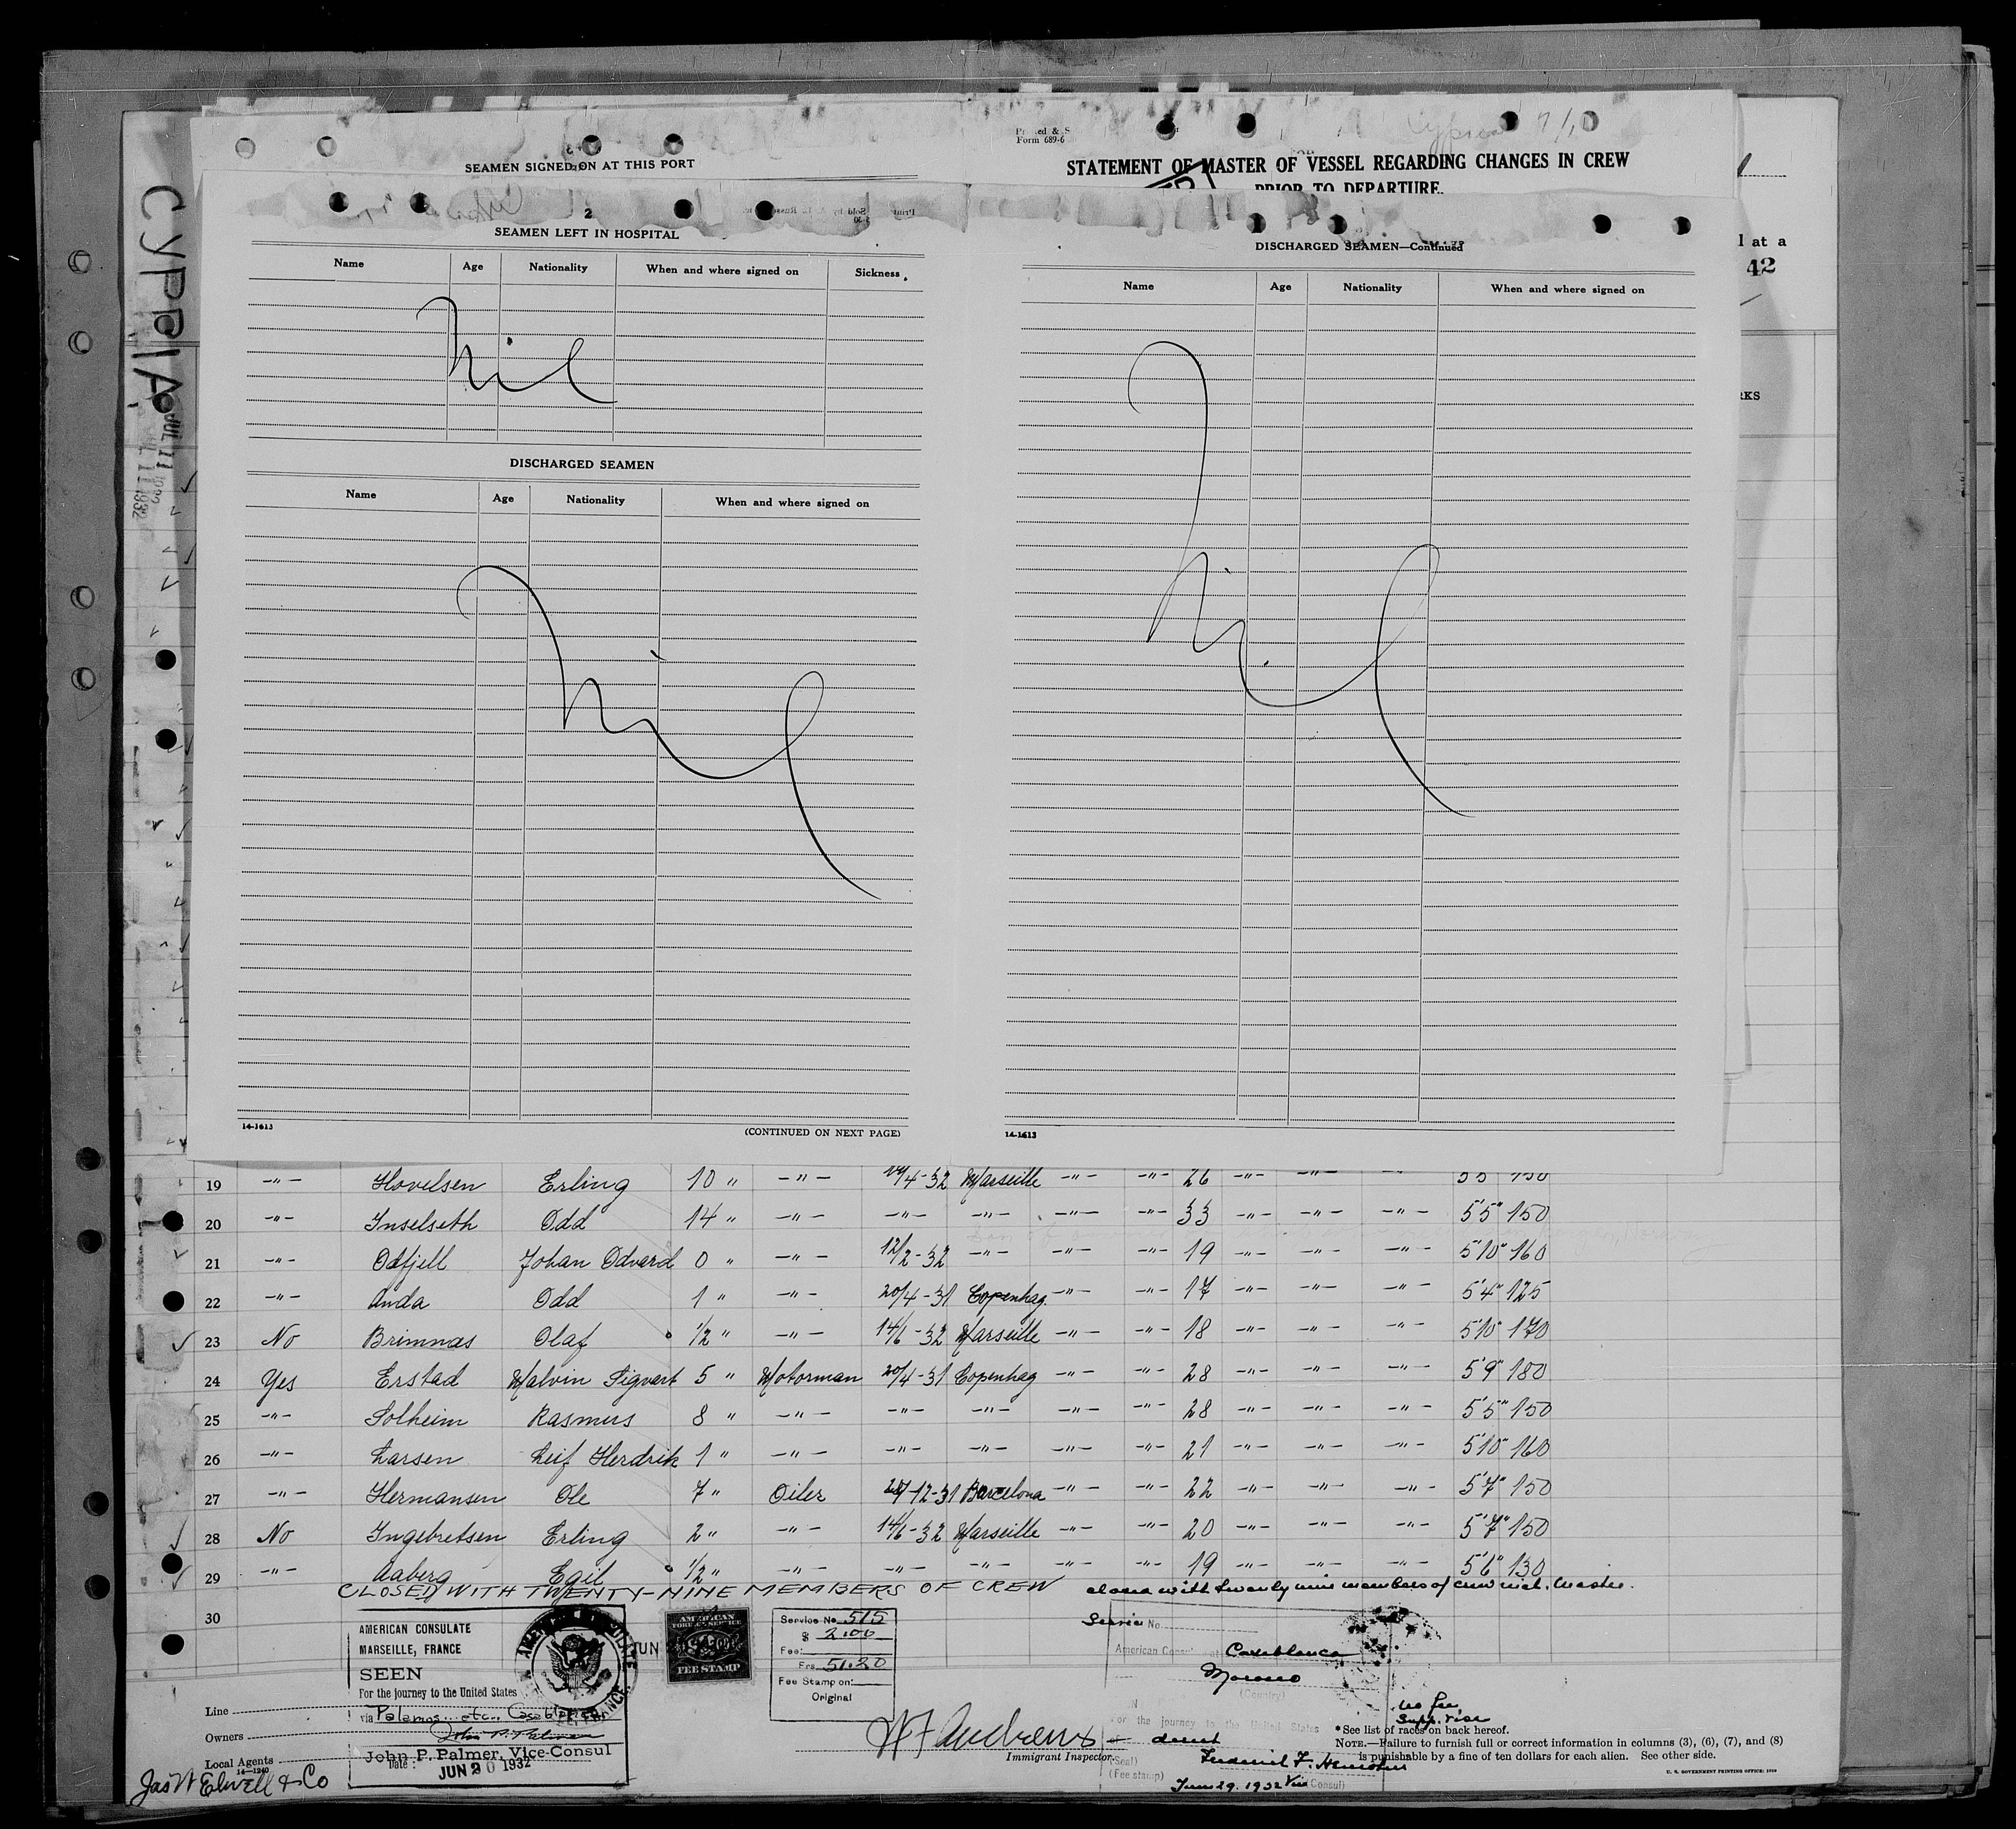 Form 689-6
SEAMEN SIGNED ON AT THIS PORT
STATEMENT OF MASTER OF VESSEL REGARDING CHANGES IN CREW
PRIOR TO DEPARTURE
CYPRIA
JUL 11 1932
2
SEAMEN LEFT IN HOSPITAL
Name Age Nationality When and where signed on Sickness
Nil
DISCHARGED SEAMEN
Name Age Nationality When and where signed on
Nil
14-1613
(CONTINUED ON NEXT PAGE)
DISCHARGED SEAMEN—Continued
Name Age Nationality When and where signed on
Nil
14-1613
l at a
42
RKS
19 -"- Hovelsen Erling 10 " -"- /4-32 Marseille -"- -"- 26 -"- -"- -"-
20 -"- Inselseth Odd 14 " -"- -"- -"- -"- -"- 33 -"- -"- -"- 5'5" 150
21 -"- Odfjell Johan Odvard 0 " -"- 12/2-32 -"- -"- -"- 19 -"- -"- -"- 5'10" 160
22 -"- Anda Odd 1 " -"- 20/4-31 Copenhag. -"- -"- 17 -"- -"- -"- 5'4" 125
23 No Brimnas Olaf 1/2 " -"- 14/6-32 Marseille -"- -"- 18 -"- -"- -"- 5'10" 170
24 Yes Erstad Malvin Sigvart 5 " Motorman 20/4-31 Copenhag -"- -"- 28 -"- -"- -"- 5'9" 180
25 -"- Solheim Rasmus 8 " -"- -"- -"- -"- -"- 28 -"- -"- -"- 5'5" 150
26 -"- Larsen Leif Hendrik 1 " -"- -"- -"- -"- -"- 21 -"- -"- -"- 5'10" 160
27 -"- Hermansen Ole 7 " Oiler 12-31 Barcelona -"- -"- 22 -"- -"- -"- 5'7" 150
28 No Ingebretsen Erling 2 " -"- 14/6-32 Marseille -"- -"- 20 -"- -"- -"- 5'7" 150
29 -"- Aaberg Egil 1/2 " -"- -"- -"- -"- -"- 19 -"- -"- -"- 5'6" 130
CLOSED WITH TWENTY-NINE MEMBERS OF CREW closed with twenty nine members of crew incl. Master.
30
AMERICAN CONSULATE
MARSEILLE, FRANCE
SEEN
For the journey to the United States
via Palamos etc. Casablanca
John P. Palmer
John P. Palmer, Vice-Consul
Date: JUN 20 1932
JUN
AMERICAN
FOREIGN SERVICE
FEE STAMP
Service No. 515
$ 2.00
Fee:
Frs. 51.20
Fee Stamp on:
Original
Line
Owners
Local Agents
14-1240
Jas W Elwell & Co
W F Andrews
Immigrant Inspector
Service No.
American Consul at Casablanca
Morocco
(Country)
For the journey to the United States
direct
(Seal)
(Fee stamp)
June 29. 1932 Vice Consul
No fee
Supp. visa
*See list of races on back hereof.
NOTE.—Failure to furnish full or correct information in columns (3), (6), (7), and (8)
is punishable by a fine of ten dollars for each alien. See other side.
U. S. GOVERNMENT PRINTING OFFICE: